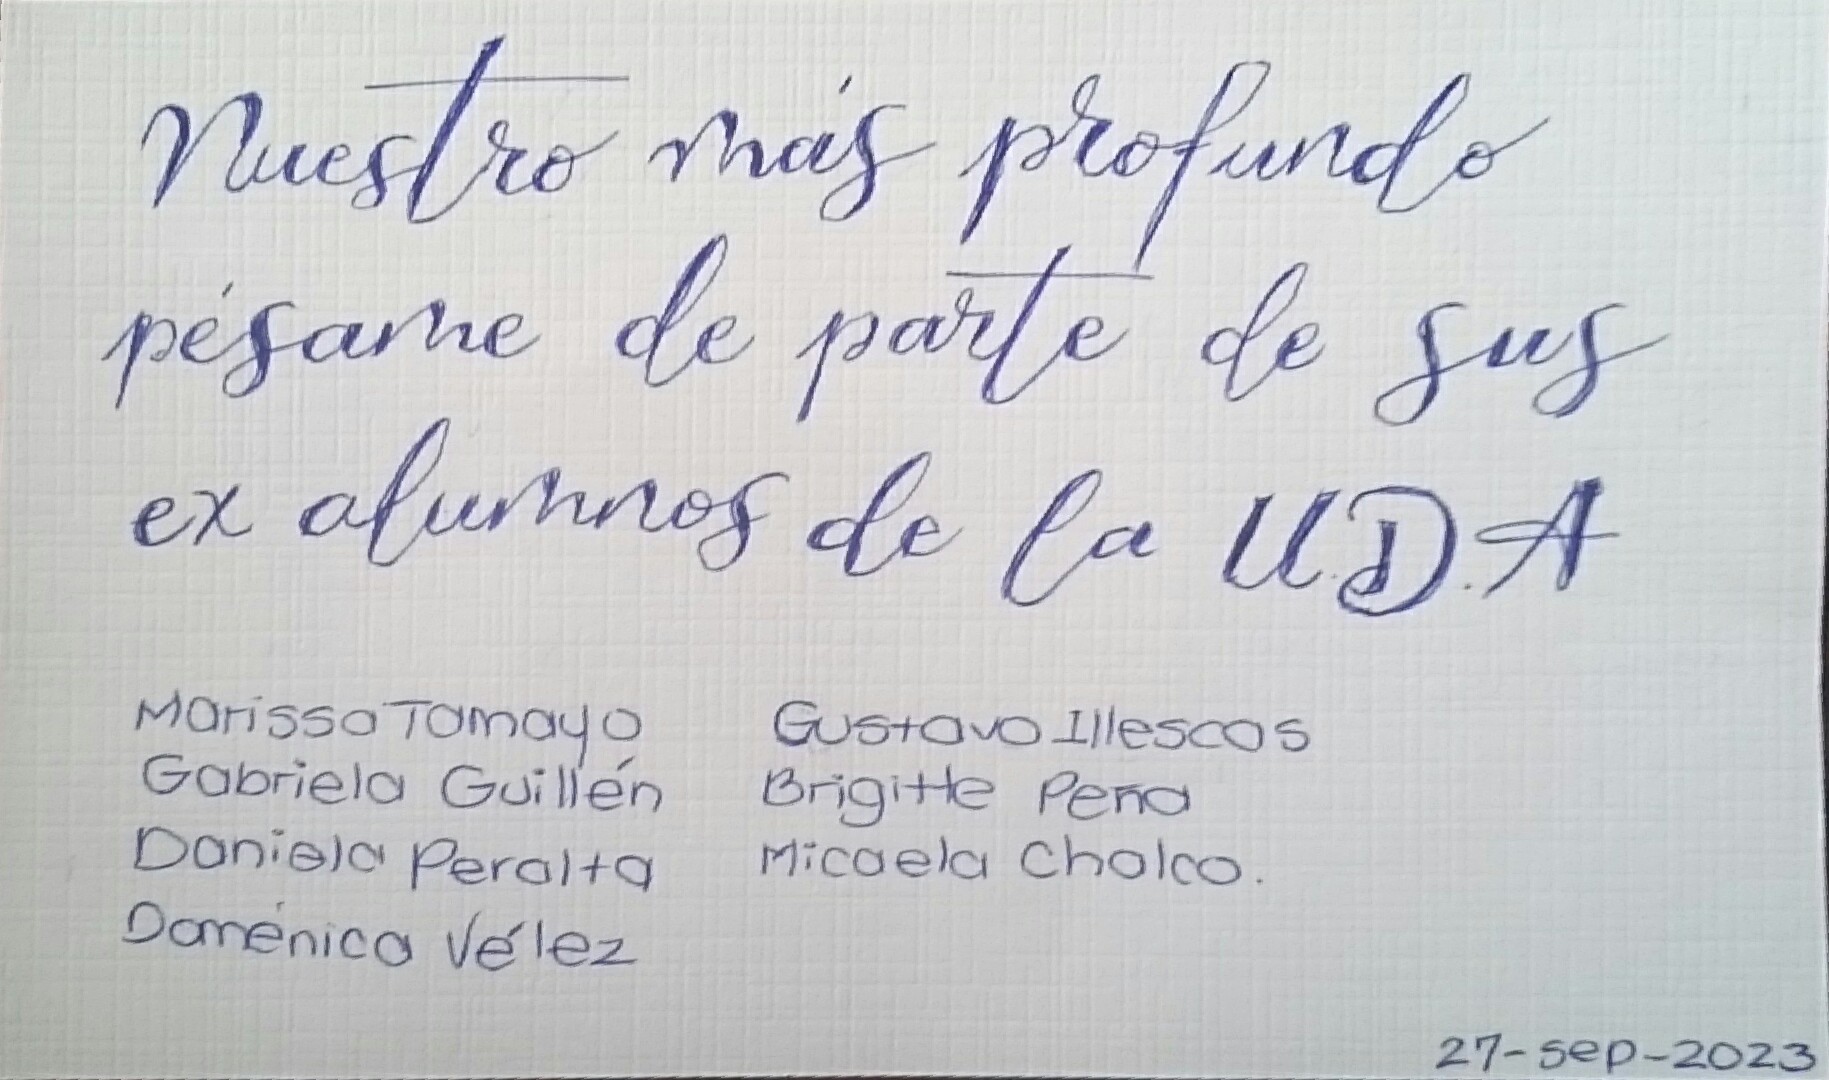 Nuestro más profundo
pésame de parte de sus
ex alumnos de la U.D.A
Marissa Tamayo
Gabriela Guillén
Daniela Peralta
Doménica Vélez
Gustavo Illescas
Brigitte Peña
Micaela Chalco.
27-sep-2023